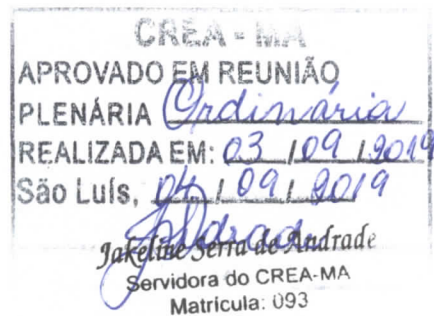 CREA - MA
APROVADO EM REUNIÃO
PLENÁRIA Ordinária
REALIZADA EM: 03 / 09 / 2019
São Luís, 04 / 09 / 2019
Jakeline Serra de Andrade
Servidora do CREA-MA
Matrícula: 093